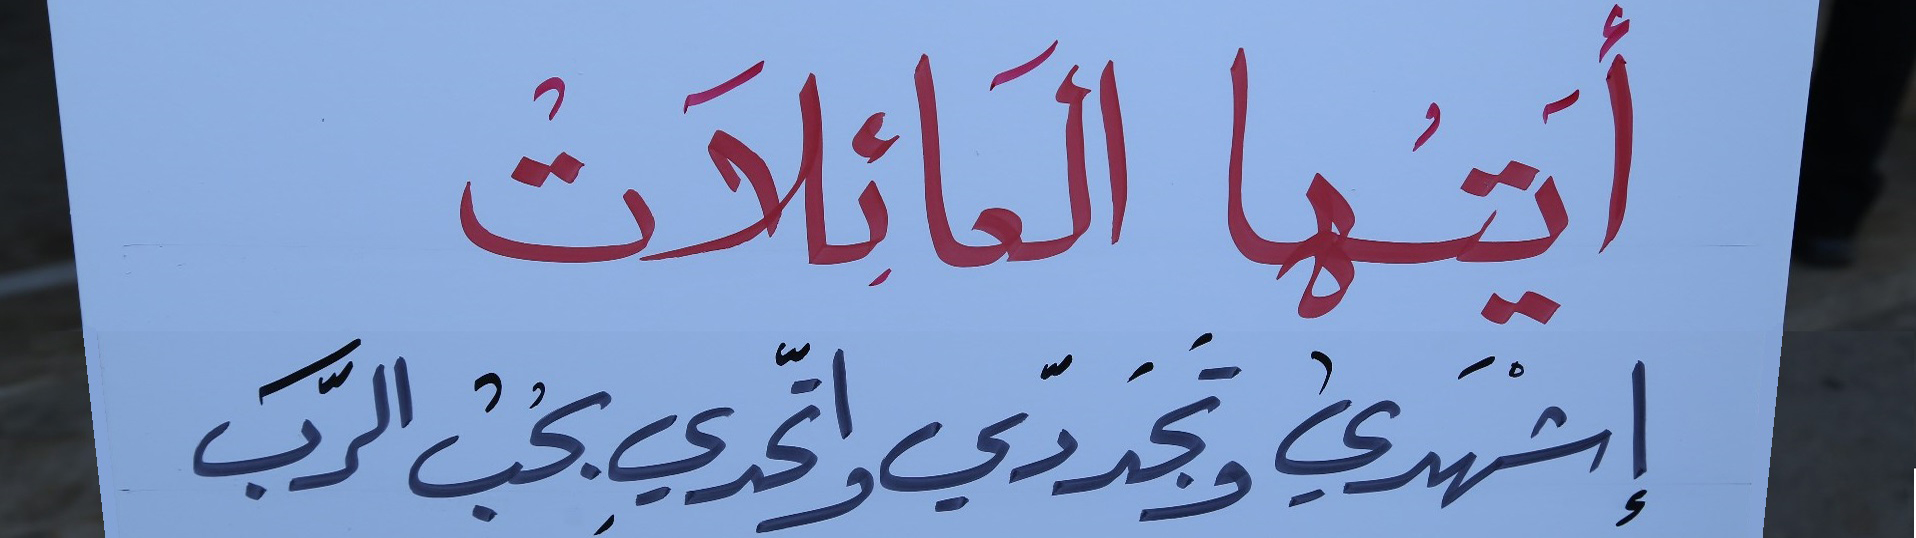 أَيَتُها الَعائِلاَتْ
إشْهَدي وتَجَدّدي واتّحدي بِحُبْ الرَّب